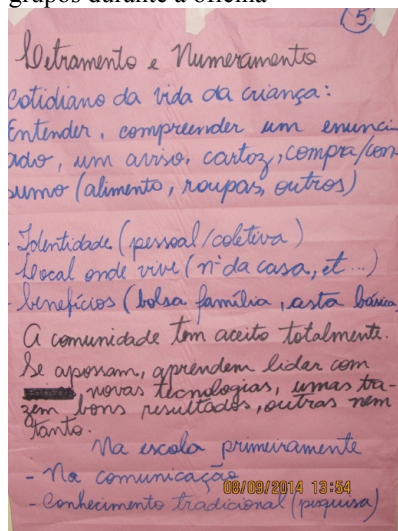 grupos durante a oficina
5
Letramento e Numeramento
cotidiano da vida da criança:
Entender, compreender um enunci-
ado, um aviso, cartaz, compra/con
sumo (alimento, roupas, outros)
- Identidade (pessoal/coletiva)
Local onde vive (nº da casa, et...)
- benefícios (bolsa família, cesta básica,
A comunidade tem aceito totalmente.
Se apossam, aprendem lidar com
novas tecnologias, umas tra-
zem bons resultados, outras nem
tanto.
Na escola primeiramente
- Na comunicação
08/09/2014 13:54
- Conhecimento tradicional (pesquisa)